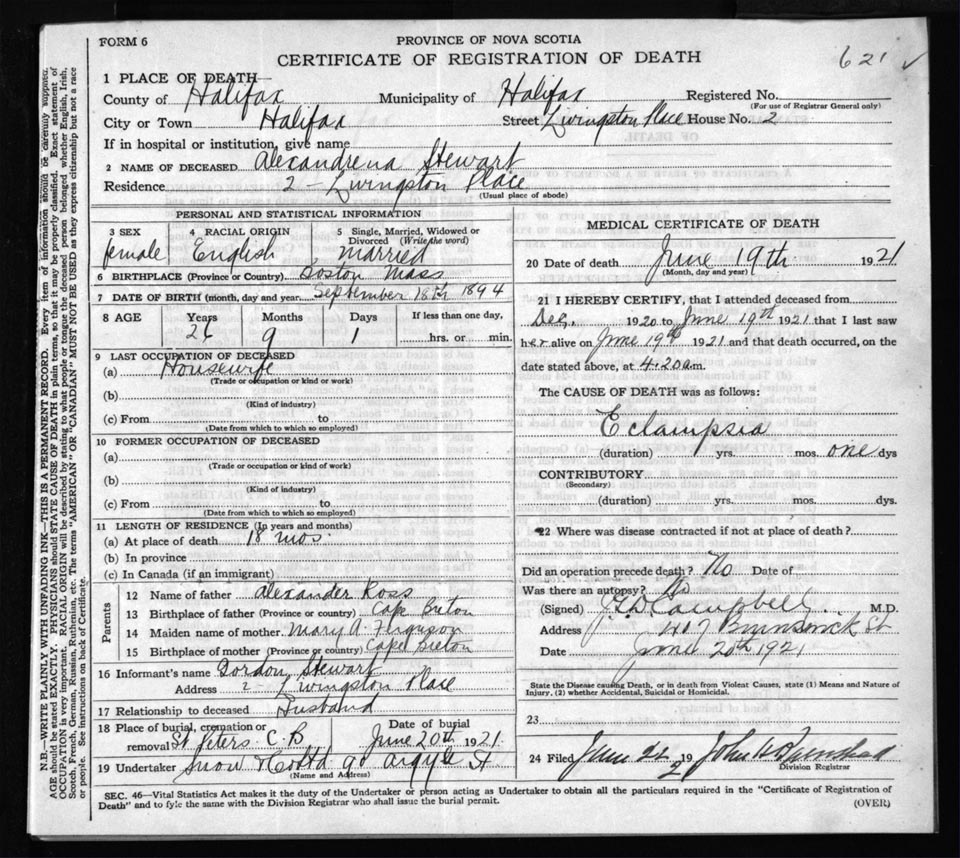 FORM 6
PROVINCE OF NOVA SCOTIA
CERTIFICATE OF REGISTRATION OF DEATH
621 ✓
1 PLACE OF DEATH—
County of Halifax Municipality of Halifax Registered No.
(For use of Registrar General only)
City or Town Halifax Street Livingston Place House No. 2
If in hospital or institution, give name
2 NAME OF DECEASED Alexandrena Stewart
Residence 2 - Livingston Place
(Usual place of abode)
PERSONAL AND STATISTICAL INFORMATION
3 SEX female
4 RACIAL ORIGIN English
5 Single, Married, Widowed or Divorced (Write the word) Married
6 BIRTHPLACE (Province or Country) Boston Mass
7 DATE OF BIRTH (month, day and year September 18th 1894
8 AGE Years 26 Months 9 Days 1 If less than one day, hrs. or min.
9 LAST OCCUPATION OF DECEASED
(a) Housewife
(Trade or occupation or kind or work)
(b)
(Kind of industry)
(c) From to
(Date from which to which so employed)
10 FORMER OCCUPATION OF DECEASED
(a)
(Trade or occupation or kind or work)
(b)
(Kind of industry)
(c) From to
(Date from which to which so employed)
11 LENGTH OF RESIDENCE (In years and months)
(a) At place of death 18 mos.
(b) In province
(c) In Canada (if an immigrant)
Parents
12 Name of father Alexander Ross
13 Birthplace of father (Province or country) Cape Breton
14 Maiden name of mother Mary A. Ferguson
15 Birthplace of mother (Province or country) Cape Breton
16 Informant's name Gordon Stewart
Address 2 - Livingston Place
17 Relationship to deceased Husband
18 Place of burial, cremation or removal St Peters C.B
Date of burial June 20th 1921
19 Undertaker Snow & Co Ltd 90 Argyle St
(Name and Address)
MEDICAL CERTIFICATE OF DEATH
20 Date of death June 19th 1921
(Month, day and year)
21 I HEREBY CERTIFY, that I attended deceased from
Dec, 1920 to June 19th 1921 that I last saw
her alive on June 19th 1921 and that death occurred, on the
date stated above, at 4.20 a.m.
The CAUSE OF DEATH was as follows:
Eclampsia
(duration) yrs. mos. one dys
CONTRIBUTORY
(Secondary)
(duration) yrs. mos. dys.
22 Where was disease contracted if not at place of death?
Did an operation precede death? No Date of
Was there an autopsy? No
(Signed) Campbell M.D.
Address 407 Brunswick St
Date June 20th 1921
State the Disease causing Death, or in death from Violent Causes, state (1) Means and Nature of
Injury, (2) whether Accidental, Suicidal or Homicidal.
23
24 Filed June 22 19 John
Division Registrar
SEC. 46—Vital Statistics Act makes it the duty of the Undertaker or person acting as Undertaker to obtain all the particulars required in the "Certificate of Registration of
Death" and to fyle the same with the Division Registrar who shall issue the burial permit.
(OVER)
N.B.—WRITE PLAINLY WITH UNFADING INK—THIS IS A PERMANENT RECORD. Every item of information should be carefully supplied.
AGE should be stated EXACTLY. PHYSICIANS should STATE CAUSE OF DEATH in plain terms, so that it may be properly classified. Exact statement of
OCCUPATION is very important. RACIAL ORIGIN will be described by stating to what people or tongue the deceased person belonged whether English, Irish,
Scotch, French, German, Russian, Ruthenian, etc. The terms "AMERICAN" OR "CANADIAN" MUST NOT BE USED as they express citizenship but not a race
or people. See instructions on back of Certificate.